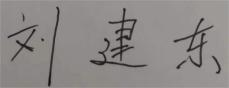 刘建东